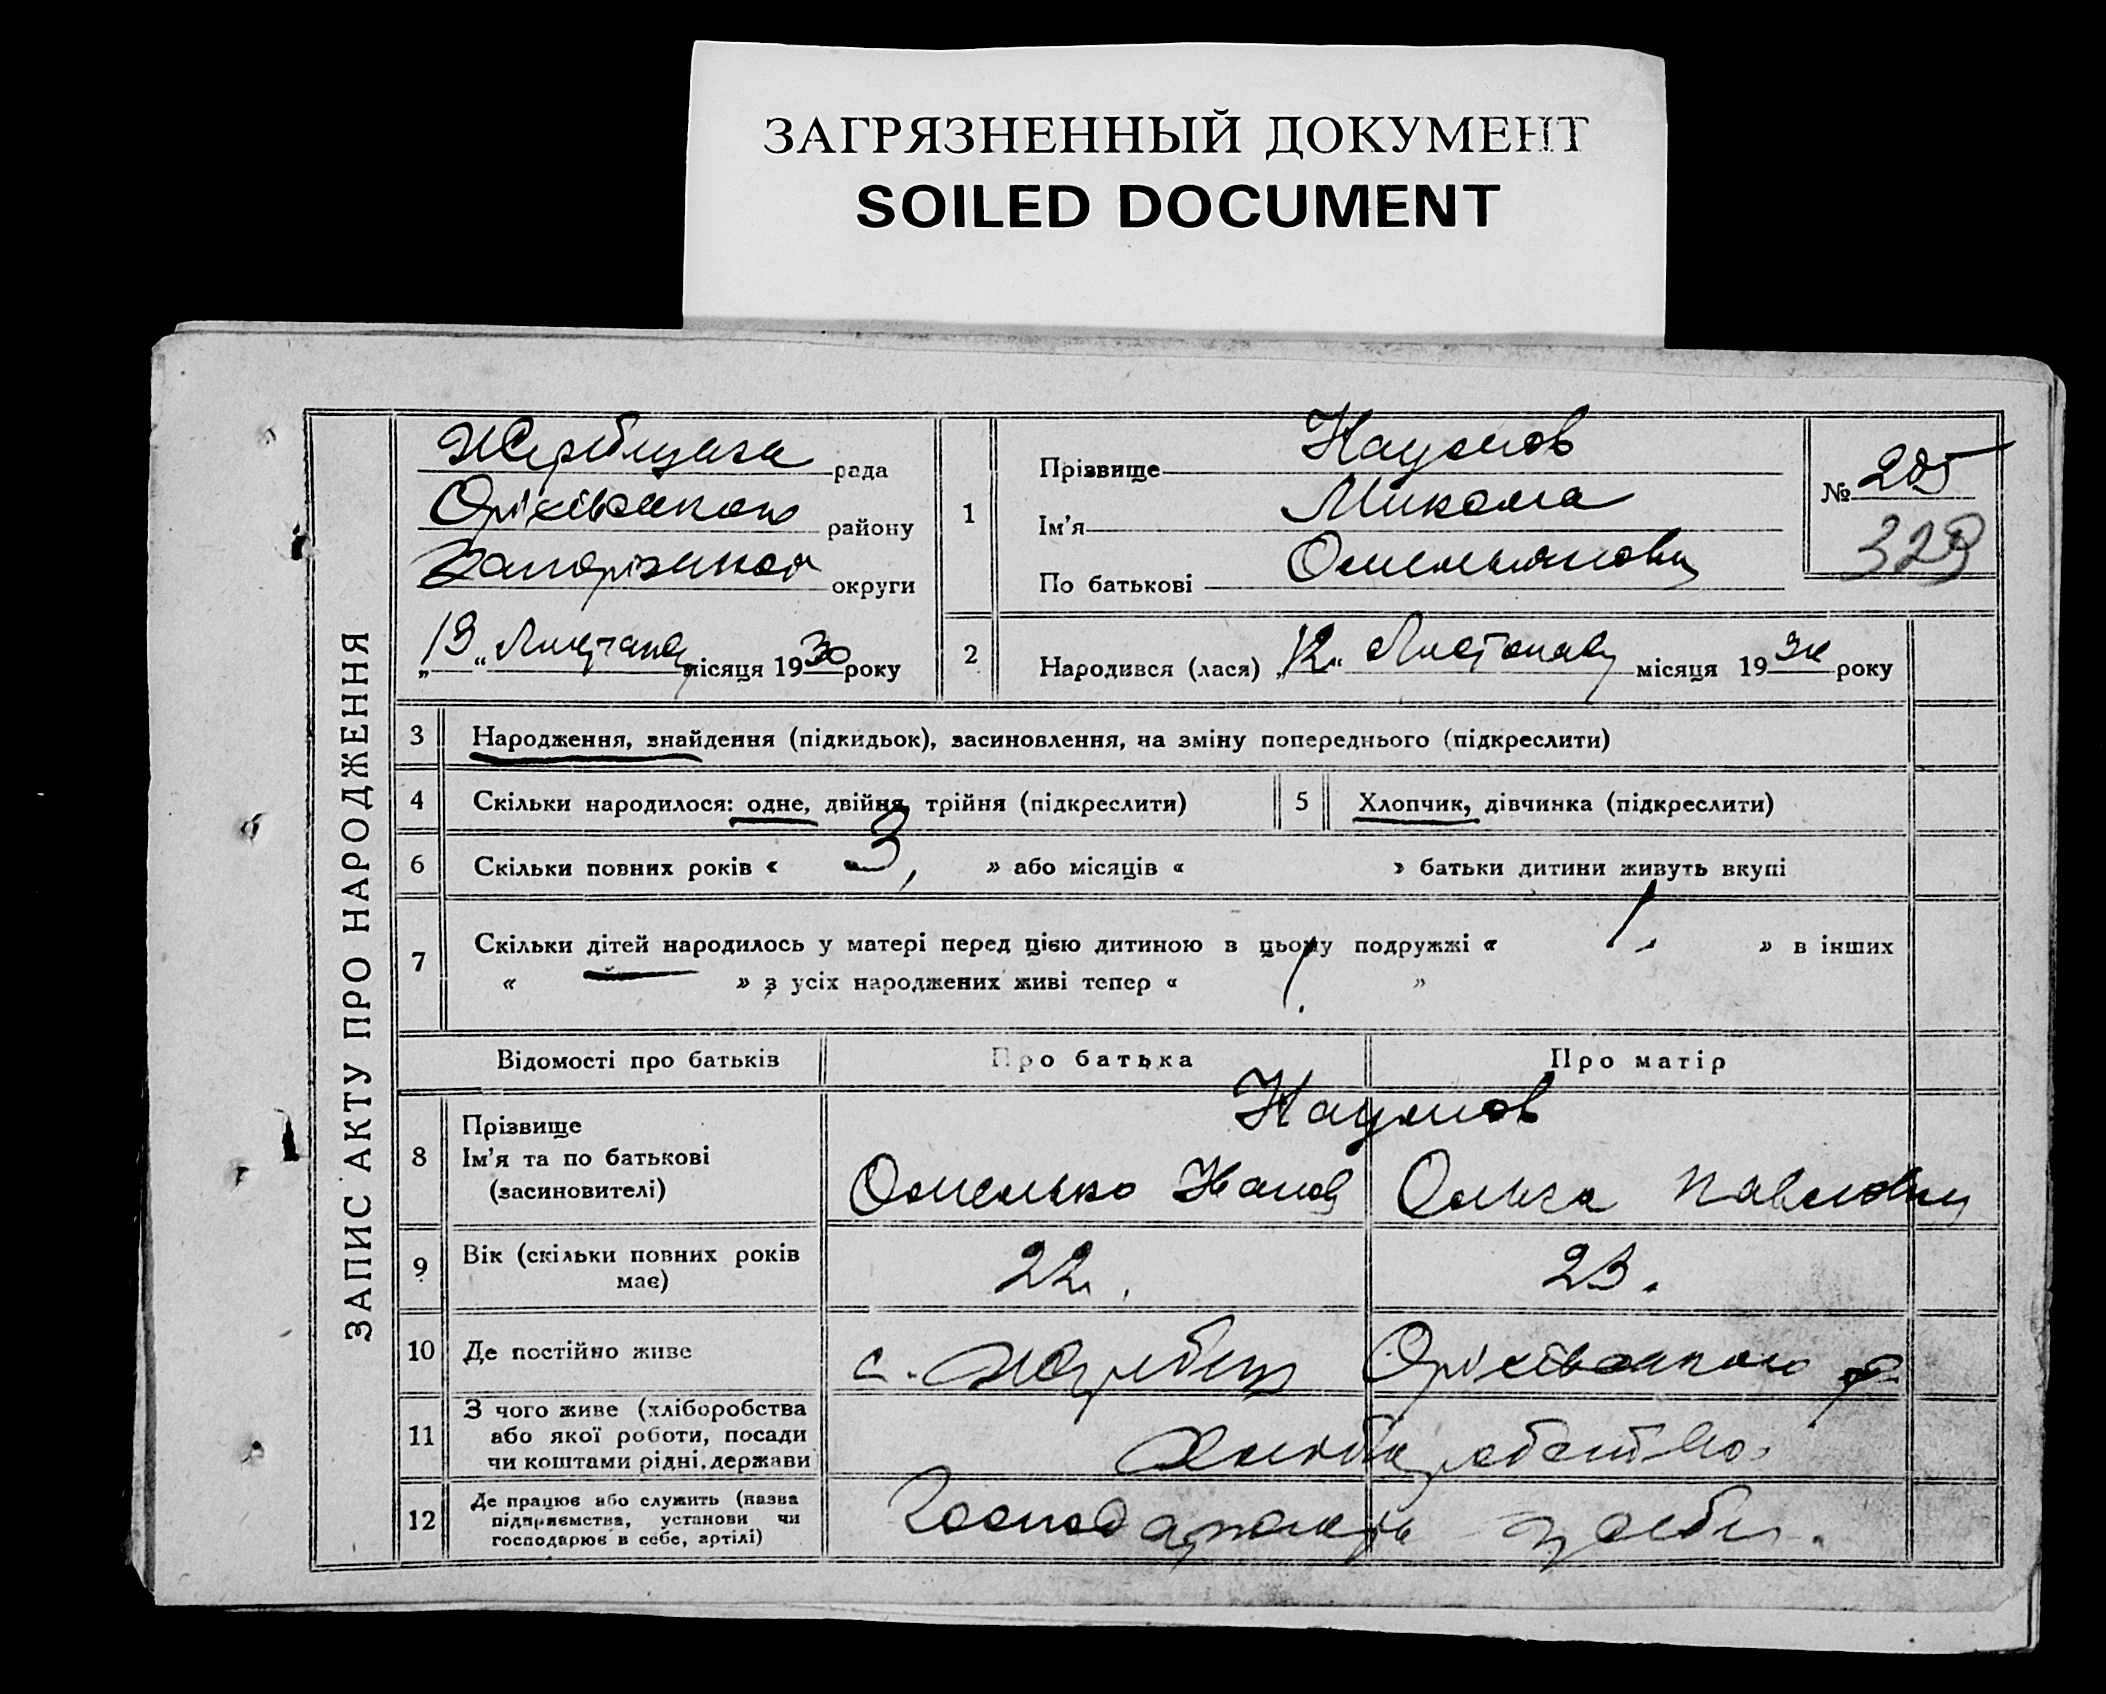 ЗАГРЯЗНЕННЫЙ ДОКУМЕНТ
SOILED DOCUMENT
ЗАПИС АКТУ ПРО НАРОДЖЕННЯ
рада
Оріхівського району
Запорізької округи
„13“ Листопад місяця 1930 року
1
Прізвище Наумов
Ім'я Микола
По батькові Омельянович
№ 205
329
2
Народився (лася) „12“ Листопад місяця 1930 року
3 Народження, знайдення (підкидьок), засиновлення, на зміну попереднього (підкреслити)
4 Скільки народилося: одне, двійня, трійня (підкреслити)
5 Хлопчик, дівчинка (підкреслити)
6 Скільки повних років « 3, » або місяців « » батьки дитини живуть вкупі
7 Скільки дітей народилось у матері перед цією дитиною в цьому подружжі « 1. » в інших
« » з усіх народжених живі тепер « 1. »
Відомості про батьків Про батька Про матір
8 Прізвище
Ім'я та по батькові
(засиновителі)
Наумов
Омелько Ольга Павловна
9 Вік (скільки повних років
має)
22. 23.
10 Де постійно живе
с. Жеребець Оріхівського р.
11 З чого живе (хліборобства
або якої роботи, посади
чи коштами рідні, держави
Хліборобство.
12 Де працює або служить (назва
підприємства, установи чи
господарює в себе, артілі)